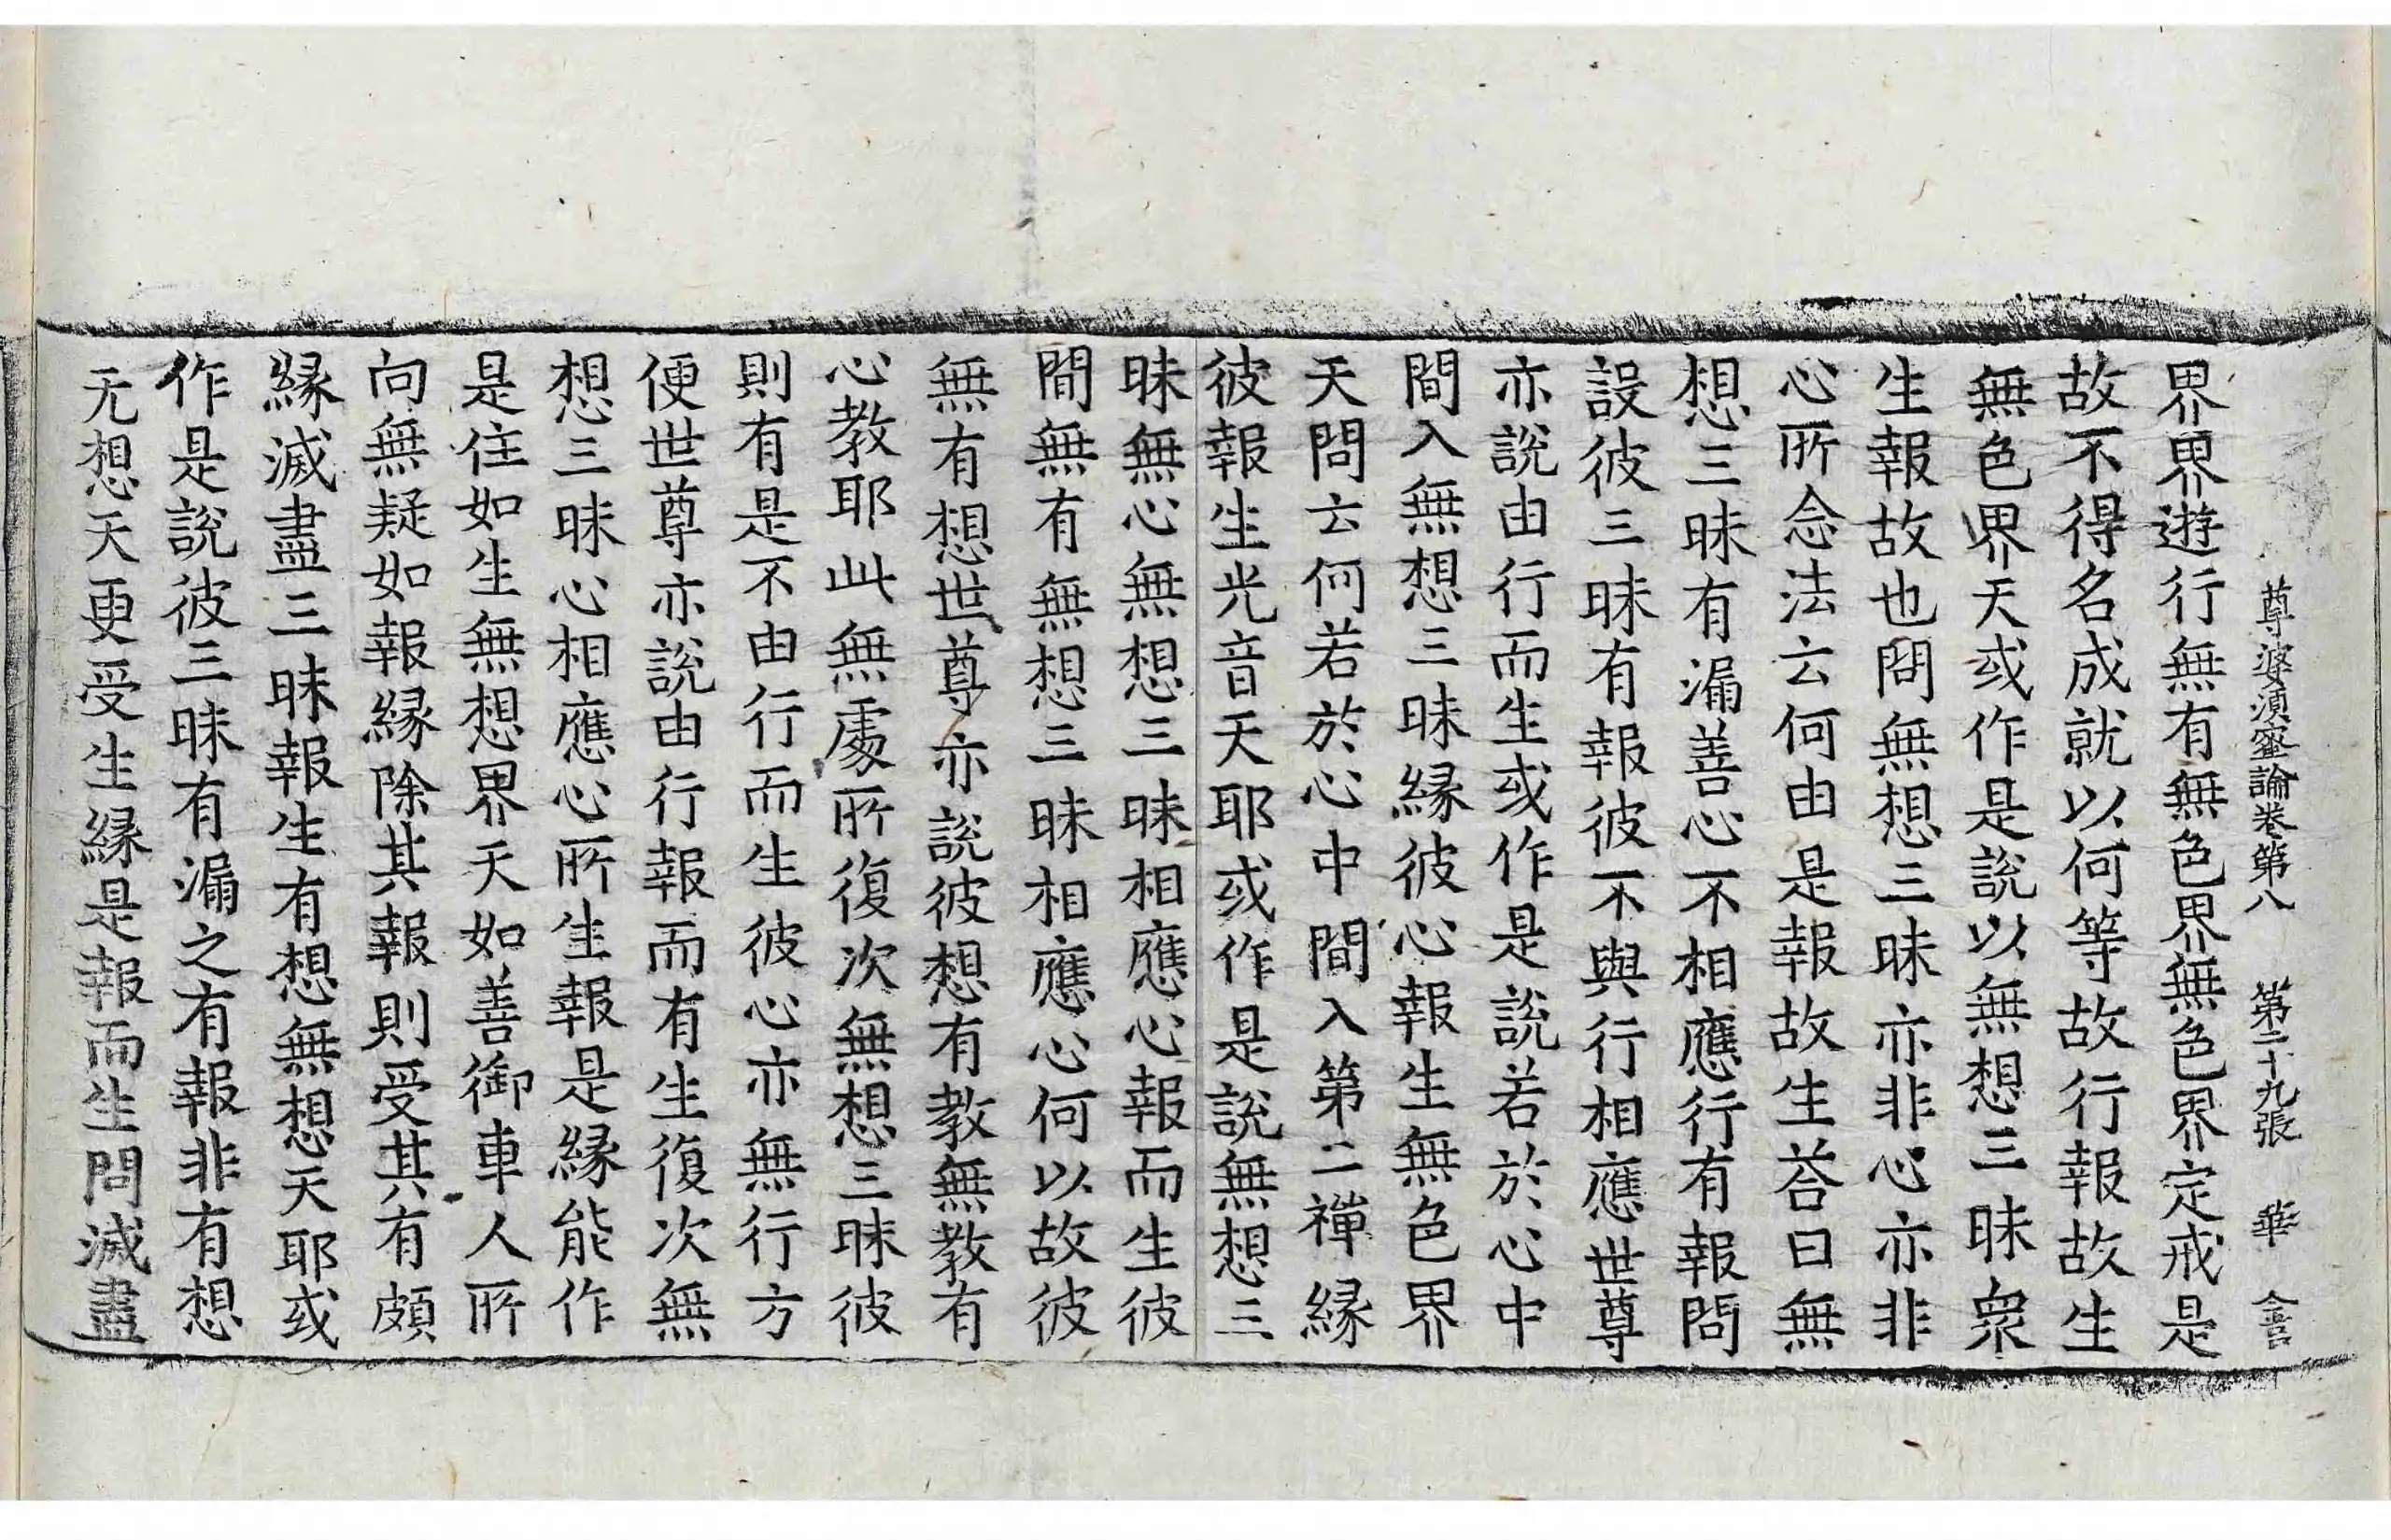 尊婆須蜜論卷第八 第二十九張 華 謇
界界遊行無有無色界無色界定戒是
故不得名成就以何等故行報故生
無色界天或作是說以無想三昧衆
生報故也問無想三昧亦非心亦非
心所念法云何由是報故生荅曰無
想三昧有漏善心不相應行有報問
設彼三昧有報彼不與行相應世尊
亦說由行而生或作是說若於心中
間入無想三昧緣彼心報生無色界
天問云何若於心中間入第二禪緣
彼報生光音天耶或作是說無想三
昧無心無想三昧相應心報而生彼
間無有無想三昧相應心何以故彼
無有想世尊亦說彼想有教無教有
心教耶此無處所復次無想三昧彼
則有是不由行而生彼心亦無行方
便世尊亦說由行報而有生復次無
想三昧心相應心所生報是緣能作
是住如生無想界天如善御車人所
向無疑如報緣除其報則受其有頗
緣滅盡三昧報生有想無想天耶或
作是說彼三昧有漏之有報非有想
无想天更受生緣是報而生問滅盡